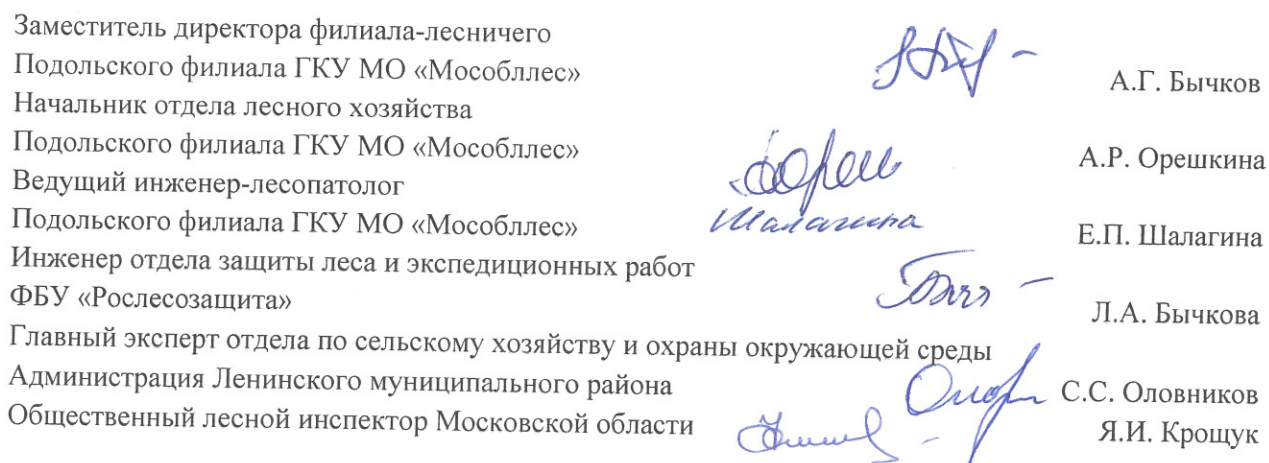 Заместитель директора филиала-лесничего
Подольского филиала ГКУ МО «Мособллес» А.Г. Бычков
Начальник отдела лесного хозяйства
Подольского филиала ГКУ МО «Мособллес» А.Р. Орешкина
Ведущий инженер-лесопатолог
Подольского филиала ГКУ МО «Мособллес» Шалагина Е.П. Шалагина
Инженер отдела защиты леса и экспедиционных работ
ФБУ «Рослесозащита» Л.А. Бычкова
Главный эксперт отдела по сельскому хозяйству и охраны окружающей среды
Администрация Ленинского муниципального района С.С. Оловников
Общественный лесной инспектор Московской области Я.И. Крощук